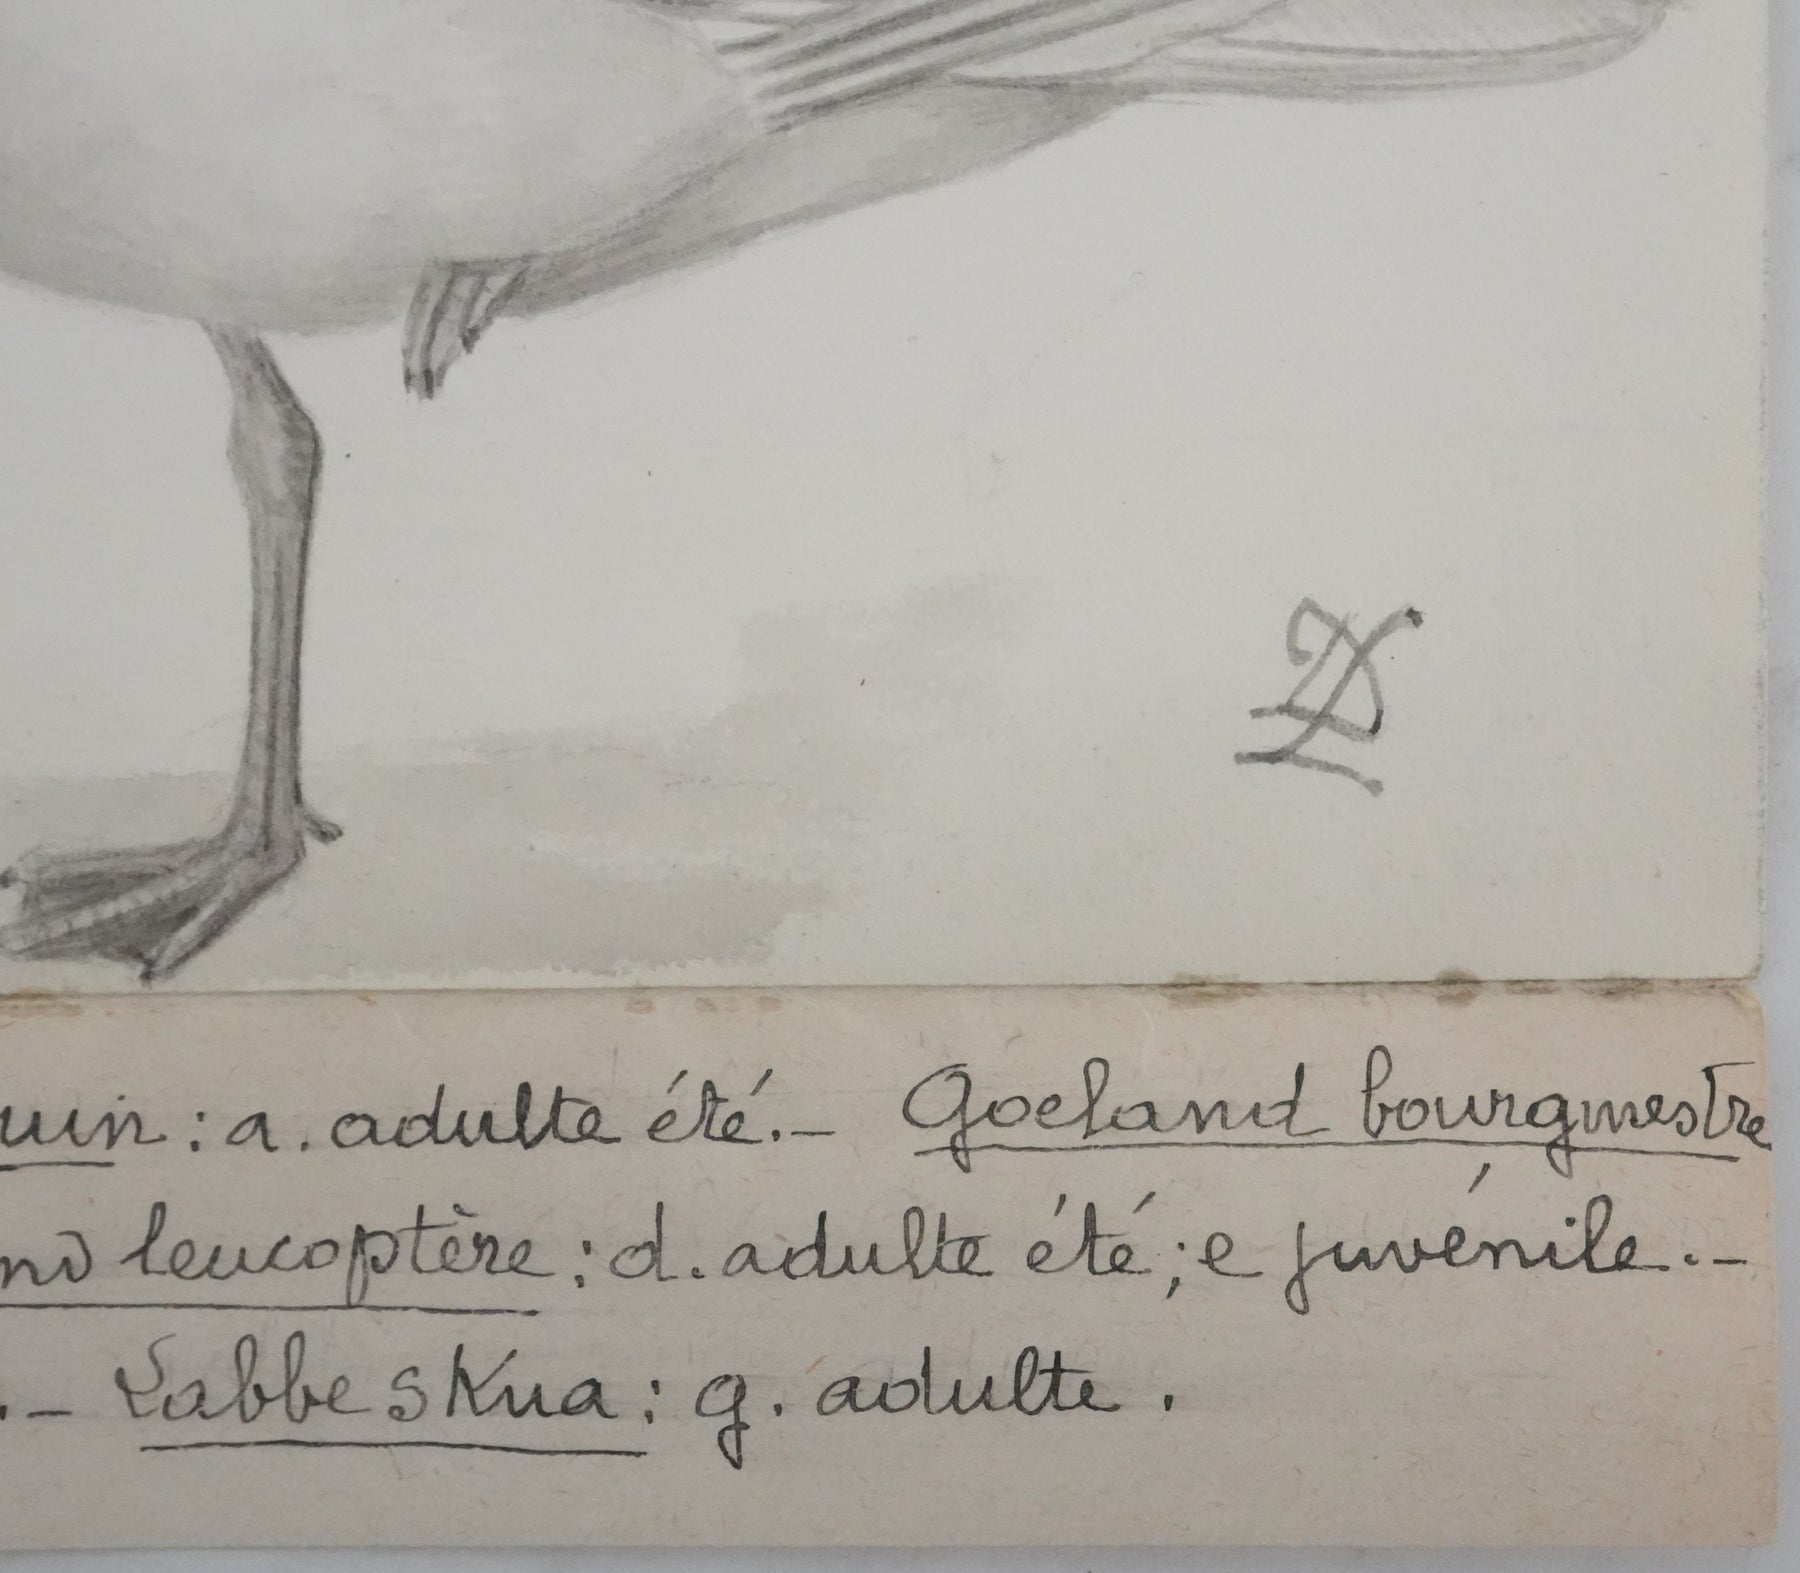 uin : a. adulte été. – Goeland bourgmestre
nd leucoptère : d. adulte été ; e juvénile. –
. – Labbe skua : g. adulte .